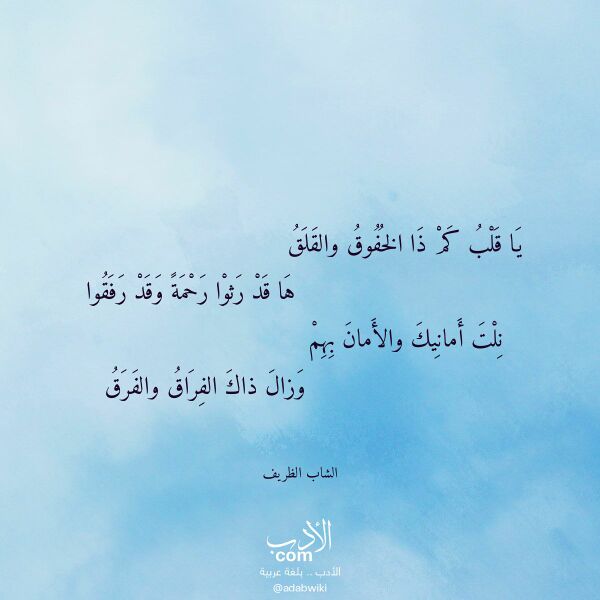 يَا قَلْبُ كَمْ ذَا الخُفُوقُ والقَلَقُ
هَا قَدْ رَثوْا رَحْمَةً وَقَدْ رَفَقُوا
نِلْتَ أَمانِيكَ والأَمانَ بِهِمْ
وَزالَ ذاكَ الفِرَاقُ والفَرَقُ
الشاب الظريف
الأدب
com
الأدب .. بلغة عربية
@adabwiki